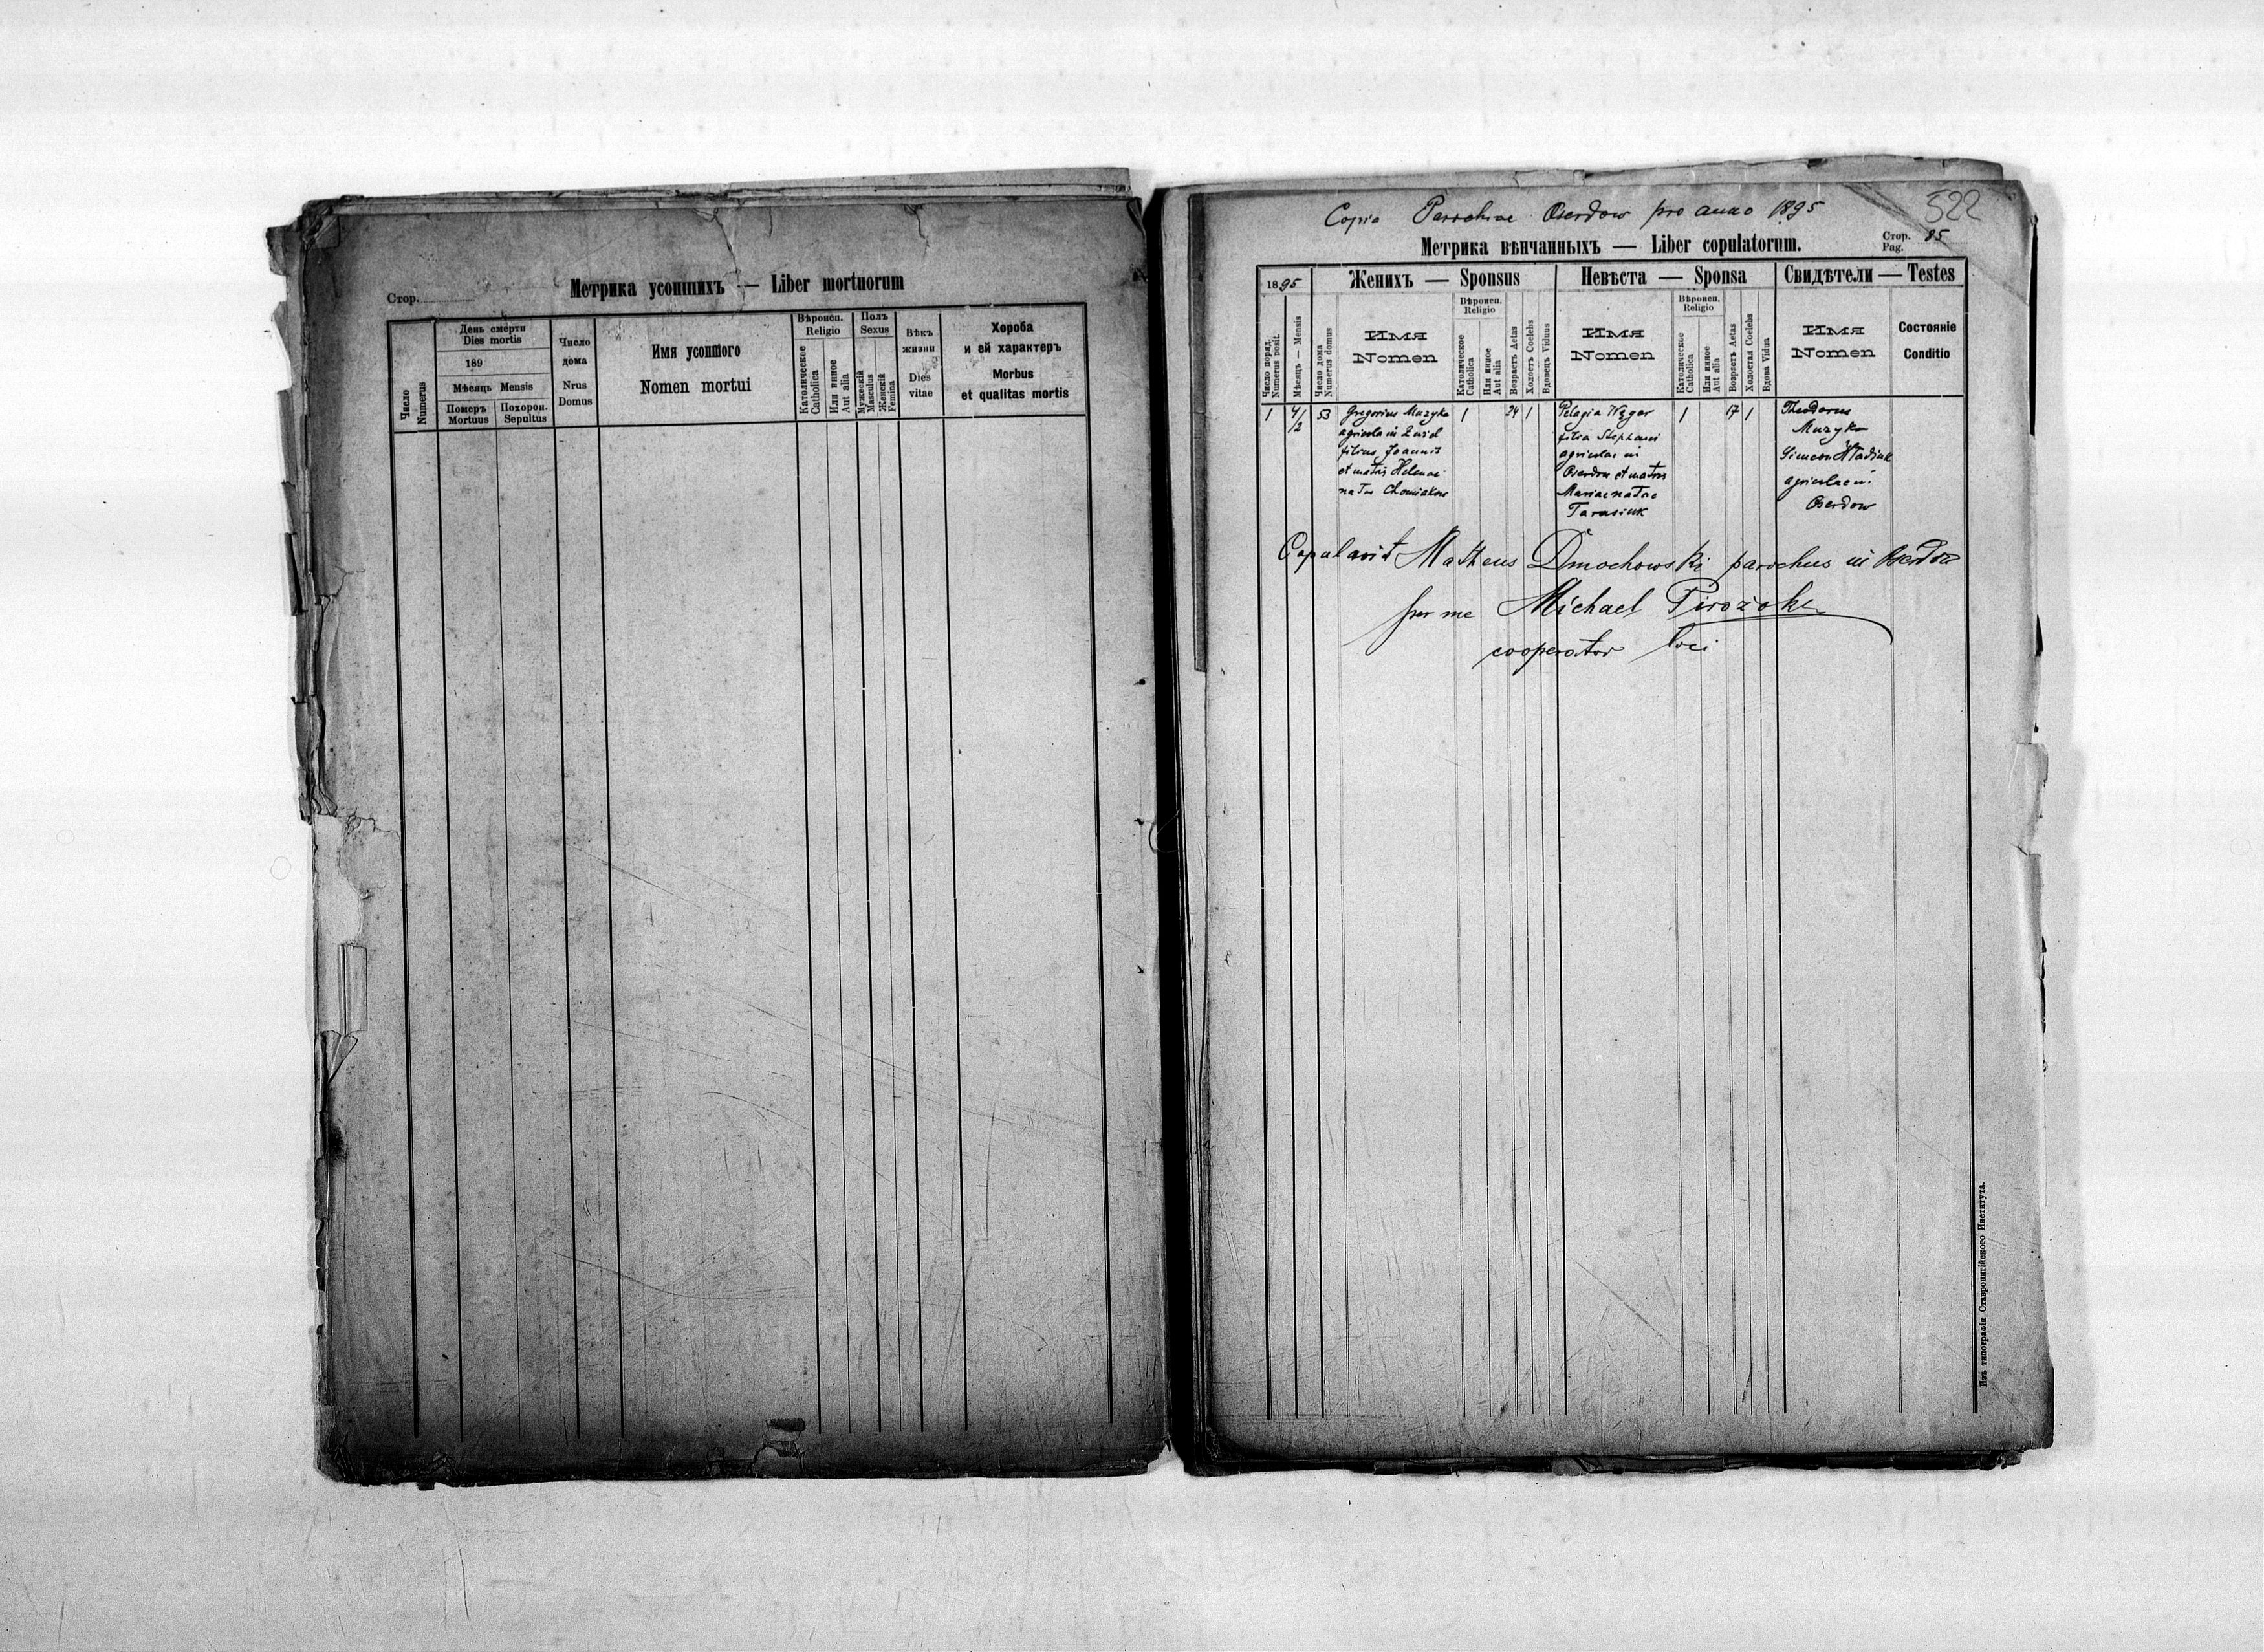 Стор.
Метрика усопшихъ — Liber mortuorum
Число
Numerus
День смерти
Dies mortis
189
Мѣсяць Mensis
Померъ
Mortuus
Похорон.
Sepultus
Число
дома
Nrus
Domus
Имя усопшого
Nomen mortui
Вѣроисп.
Religio
Католическое
Catholica
Или инное
Aut alia
Полъ
Sexus
Мужескій
Masculus
Женскій
Femina
Вѣкъ
жизни
Dies
vitae
Хороба
и ей характеръ
Morbus
et qualitas mortis
Copia Parochiae Oserdow pro anno 1895
522
Метрика вѣнчанныхъ — Liber copulatorum.
Стор. 85
Pag.
1895
Женихъ — Sponsus
Невѣста — Sponsa
Свидѣтели — Testes
Число поряд.
Numerus posit.
Мѣсяць — Mensis
Число дома
Numerus domus
Имя
Nomen
Вѣроисп.
Religio
Католическое
Catholica
Или инное
Aut alia
Возрастъ Aetas
Холостъ Coelebs
Вдовець Viduus
Имя
Nomen
Вѣроисп.
Religio
Католическое
Catholica
Или инное
Aut alia
Возрастъ Aetas
Холостая Coelebs
Вдова Vidua
Имя
Nomen
Состояніе
Conditio
1 4/2 53 Gregorius Muzyka 1 24 1
agricola in
filius Joannis
et matris Helenae
natae Chomiakow
Pelagia 1 17 1
filia Stephani
agricolae in
Oserdow et matris
Mariae natae
Tarasiuk
Theodorus
Muzyka
Simeon Hładiuk
agricolae in
Oserdow
Copulavit Matheus Dmochowski parochus in Oserdow
per me Michael
cooperator loci
Изъ типографіи Ставропигійского Института.